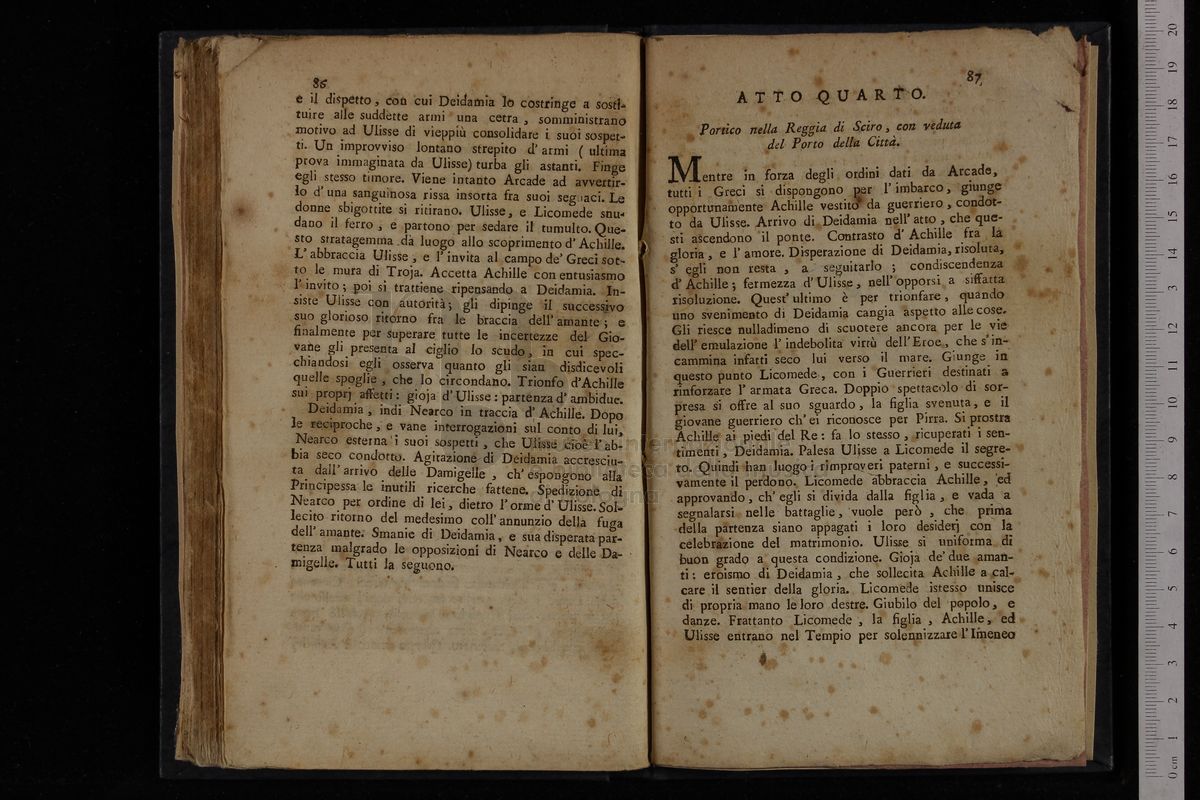 86
e il dispetto, con cui Deidamia lo costringe a sosti-
tuire alle suddette armi una cetra, somministrano
motivo ad Ulisse di vieppiù consolidare i suoi sospet-
ti. Un improvviso lontano strepito d' armi ( ultima
prova immaginata da Ulisse) turba gli astanti. Finge
egli stesso timore. Viene intanto Arcade ad avvertir-
lo d' una sanguinosa rissa insorta fra suoi seguaci. Le
donne sbigottite si ritirano. Ulisse, e Licomede snu-
dano il ferro, e partono per sedare il tumulto. Que-
sto stratagemma dà luogo allo scoprimento d' Achille.
L' abbraccia Ulisse, e l' invita al campo de' Greci sot-
to le mura di Troja. Accetta Achille con entusiasmo
l' invito; poi si trattiene ripensando a Deidamia. In-
siste Ulisse con autorità; gli dipinge il successivo
suo glorioso ritorno fra le braccia dell' amante; e
finalmente per superare tutte le incertezze del Gio-
vane gli presenta al ciglio lo scudo, in cui spec-
chiandosi egli osserva quanto gli sian disdicevoli
quelle spoglie, che lo circondano. Trionfo d'Achille
sui proprj affetti: gioja d' Ulisse: partenza d' ambidue.
Deidamia, indi Nearco in traccia d' Achille. Dopo
le reciproche, e vane interrogazioni sul conto di lui,
Nearco esterna i suoi sospetti, che Ulisse cioè l' ab-
bia seco condotto. Agitazione di Deidamia accresciu-
ta dall' arrivo delle Damigelle, ch' espongono alla
Principessa le inutili ricerche fattene. Spedizione di
Nearco per ordine di lei, dietro l' orme d' Ulisse. Sol-
lecito ritorno del medesimo coll' annunzio della fuga
dell' amante. Smanie di Deidamia, e sua disperata par-
tenza malgrado le opposizioni di Nearco e delle Da-
migelle. Tutti la seguono.
87
ATTO QUARTO.
Portico nella Reggia di Sciro, con veduta
del Porto della Città.
Mentre in forza degli ordini dati da Arcade,
tutti i Greci si dispongono per l' imbarco, giunge
opportunamente Achille vestito da guerriero, condot-
to da Ulisse. Arrivo di Deidamia nell' atto, che que-
sti ascendono il ponte. Contrasto d' Achille fra la
gloria, e l' amore. Disperazione di Deidamia, risoluta,
s' egli non resta, a seguitarlo; condiscendenza
d' Achille; fermezza d' Ulisse, nell' opporsi a siffatta
risoluzione. Quest' ultimo è per trionfare, quando
uno svenimento di Deidamia cangia aspetto alle cose.
Gli riesce nulladimeno di scuotere ancora per le vie
dell' emulazione l' indebolita virtù dell' Eroe, che s' in-
cammina infatti seco lui verso il mare. Giunge in
questo punto Licomede, con i Guerrieri destinati a
rinforzare l' armata Greca. Doppio spettacolo di sor-
presa si offre al suo sguardo, la figlia svenuta, e il
giovane guerriero ch' ei riconosce per Pirra. Si prostra
Achille ai piedi del Re: fa lo stesso, ricuperati i sen-
timenti, Deidamia. Palesa Ulisse a Licomede il segre-
to. Quindi han luogo i rimproveri paterni, e successi-
vamente il perdono. Licomede abbraccia Achille, ed
approvando, ch' egli si divida dalla figlia, e vada a
segnalarsi nelle battaglie, vuole però, che prima
della partenza siano appagati i loro desiderj con la
celebrazione del matrimonio. Ulisse si uniforma di
buon grado a questa condizione. Gioja de' due aman-
ti: eroismo di Deidamia, che sollecita Achille a cal-
care il sentier della gloria. Licomede istesso unisce
di propria mano le loro destre. Giubilo del popolo, e
danze. Frattanto Licomede, la figlia, Achille, ed
Ulisse entrano nel Tempio per solennizzare l' Imeneo